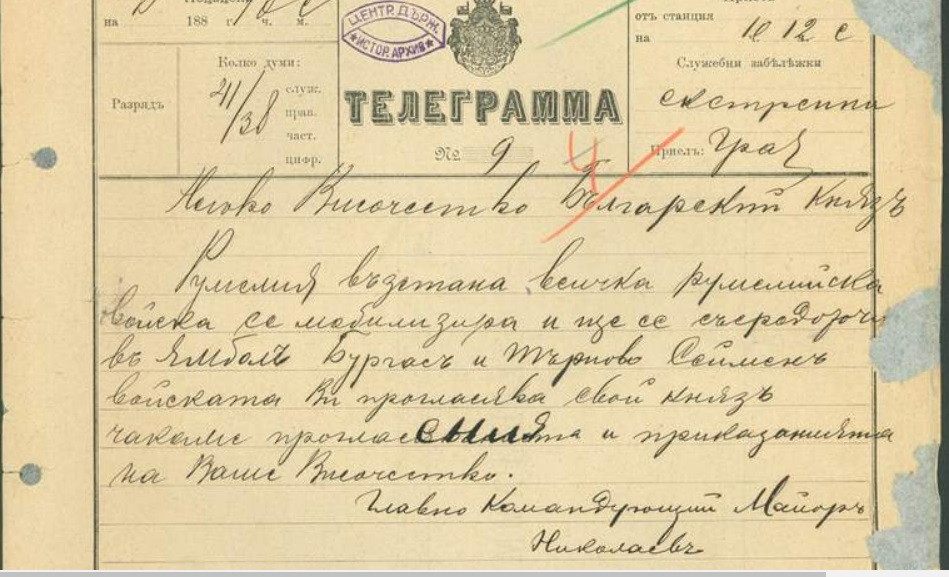 на
188 г. ч. м.
ЦЕНТР. ДЪРЖ.
ИСТОР. АРХИВ
отъ станция
на 10 12 с
Колко думи:
Служебни забѣлѣжки
Разрядъ
41/38
служ.
прав.
част.
цифр.
ТЕЛЕГРАММА
№ 9
екстренна
Приелъ:
Негово Височество Българский Князъ
Румелия въдстана всичка румелийска
войска се мобилизира и ще се съсредоточи
въ Ямболъ Бургасъ и Търново Сейменъ
войската Ви прогласява свой князъ
чакаме и приказанията
на Ваше Височество.
Главно Командующий Майоръ
Николаевъ